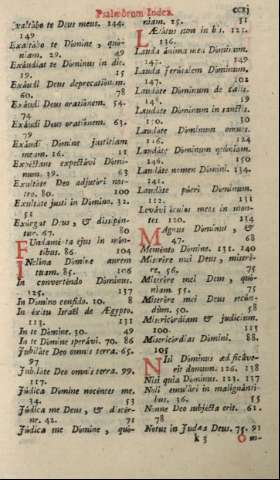 Psalmorum Index. ccxj
Exaltabo te Deus meus. 144.
149
Exaltabo te Domine, quo-
niam. 29. 49
Exáudiat te Dóminus in die.
19. 15
Exáudi Deus deprecatiónem.
60. 78
Exáudi Deus oratiónem. 54.
74
Exáudi Deus oratiónem. 63.
79
Exáudi Dómine justítiam
meam. 16. 11
Expéctans expectávi Dómi-
num. 39. 63
Exultáte Deo adjutóri nos-
tro. 80. 100
Exultáte justi in Domino. 32.
53
Exúrgat Deus, & dissipén-
tur. 67. 80
Fundaménta ejus in món-
tibus. 86. 104
Inclína Dómine aurem
tuam. 85. 106
In converténdo Dóminus.
125. 137
In Dómino confído. 10. 8
In éxitu Israël de Ægypto.
113. 131
In te Dómine. 30. 49
In te Dómine sperávi. 70. 86
Jubiláte Deo omnis terra. 65.
97
Jubiláte Deo omnis terra. 99.
117.
Júdica Dómine nocéntes me.
34. 53
Júdica me Deus, & discér-
ne. 42. 71
Júdica me Dómine, quó-
niam. 25. 51
Lætátus sum in his. 121.
136.
Lauda ánima mea Dóminum.
147. 149
Lauda Jerúsalem Dóminum.
147.
Laudáte Dóminum de cælis.
148. 59
Laudáte Dóminum in sanctis.
150. 30
Laudáte Dóminum omnes.
116. 124
Laudáte Dóminum quóniam.
146. 150
Laudáte nomen Dómini. 134.
141
Laudáte púeri Dóminum.
112. 131
Levávi óculos meos in mon-
tes. 120. 114
Magnus Dóminus, &
47. 68
Meménto Dómine. 131. 140
Miserére mei Deus, miseré-
re. 56. 75
Miserére mei Deus, quó-
niam. 55. 75
Miserére mei Deus secún-
dùm. 50. 58
Misericórdiam & judícium.
100. 113
Misericórdias Dómini. 88.
105
Nisi Dóminus ædificáve-
rit domum. 126. 138
Nisi quia Dóminus. 123. 137
Noli æmulári in malignánti-
bus. 36. 55
Nonne Deo subjécta erit. 61.
78
Notus in Judǽa Deus. 75. 91
k 3 Om-